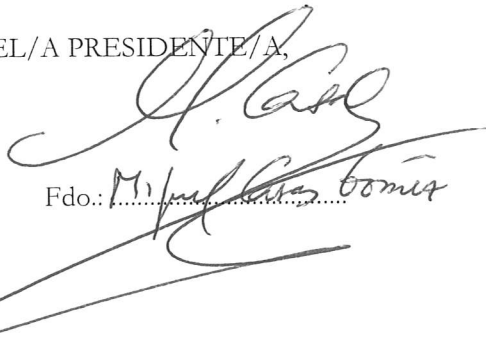 EL/A PRESIDENTE/A,
M. Casas
Fdo.: Miguel Casas Gómez